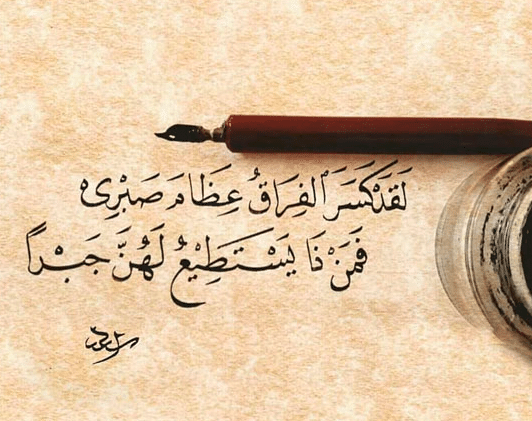 لَقَدْ كَسَرَ الفِرَاقُ عِظَامَ صَبْرِي
فَمَنْ ذَا يَسْتَطِيْعُ لَهُنَّ جَبْراً